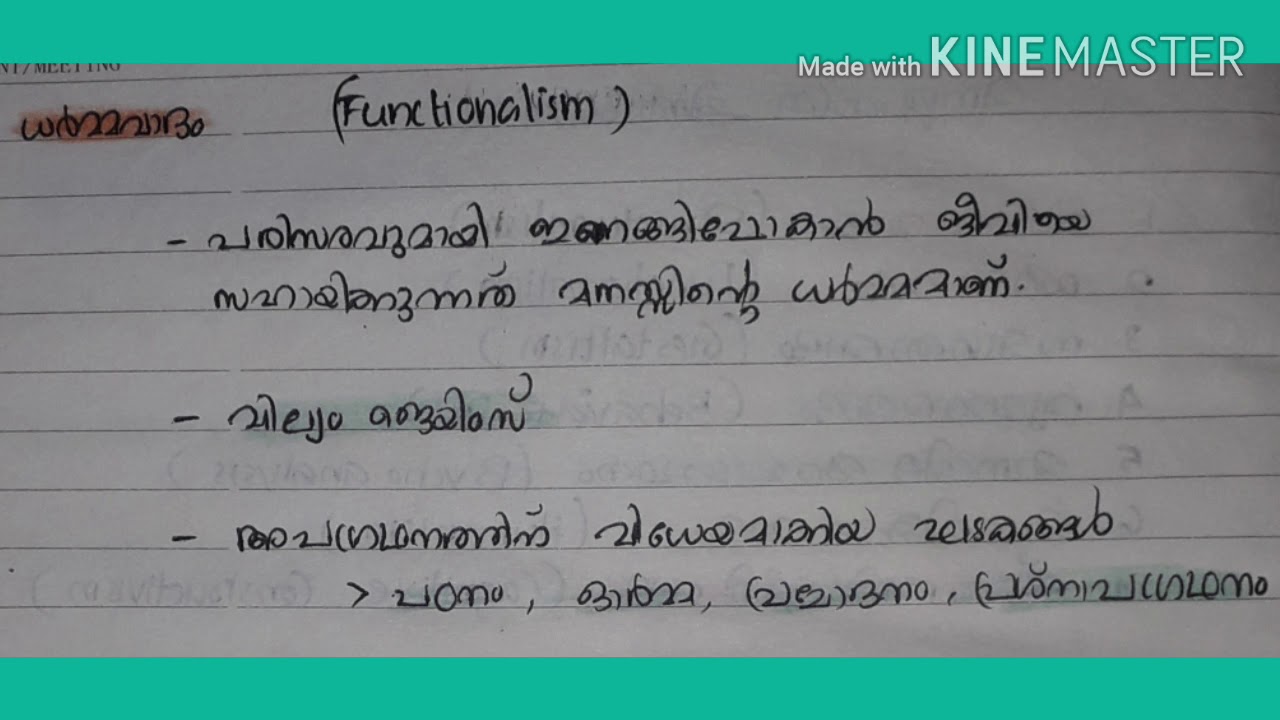 Made with KINEMASTER
NT/MEETING
ധർമ്മവാദം (Functionalism)
- പരിസരവുമായി ഇണങ്ങിപോകാൻ ജീവിയെ
സഹായിക്കുന്നത് മനസ്സിന്റെ ധർമ്മമാണ്.
- വില്യം ജെയിംസ്
- അപഗ്രഥനത്തിന് വിധേയമാക്കിയ ഘടകങ്ങൾ
> പഠനം, ഓർമ്മ, പ്രചോദനം, പ്രശ്നാപഗ്രഥനം